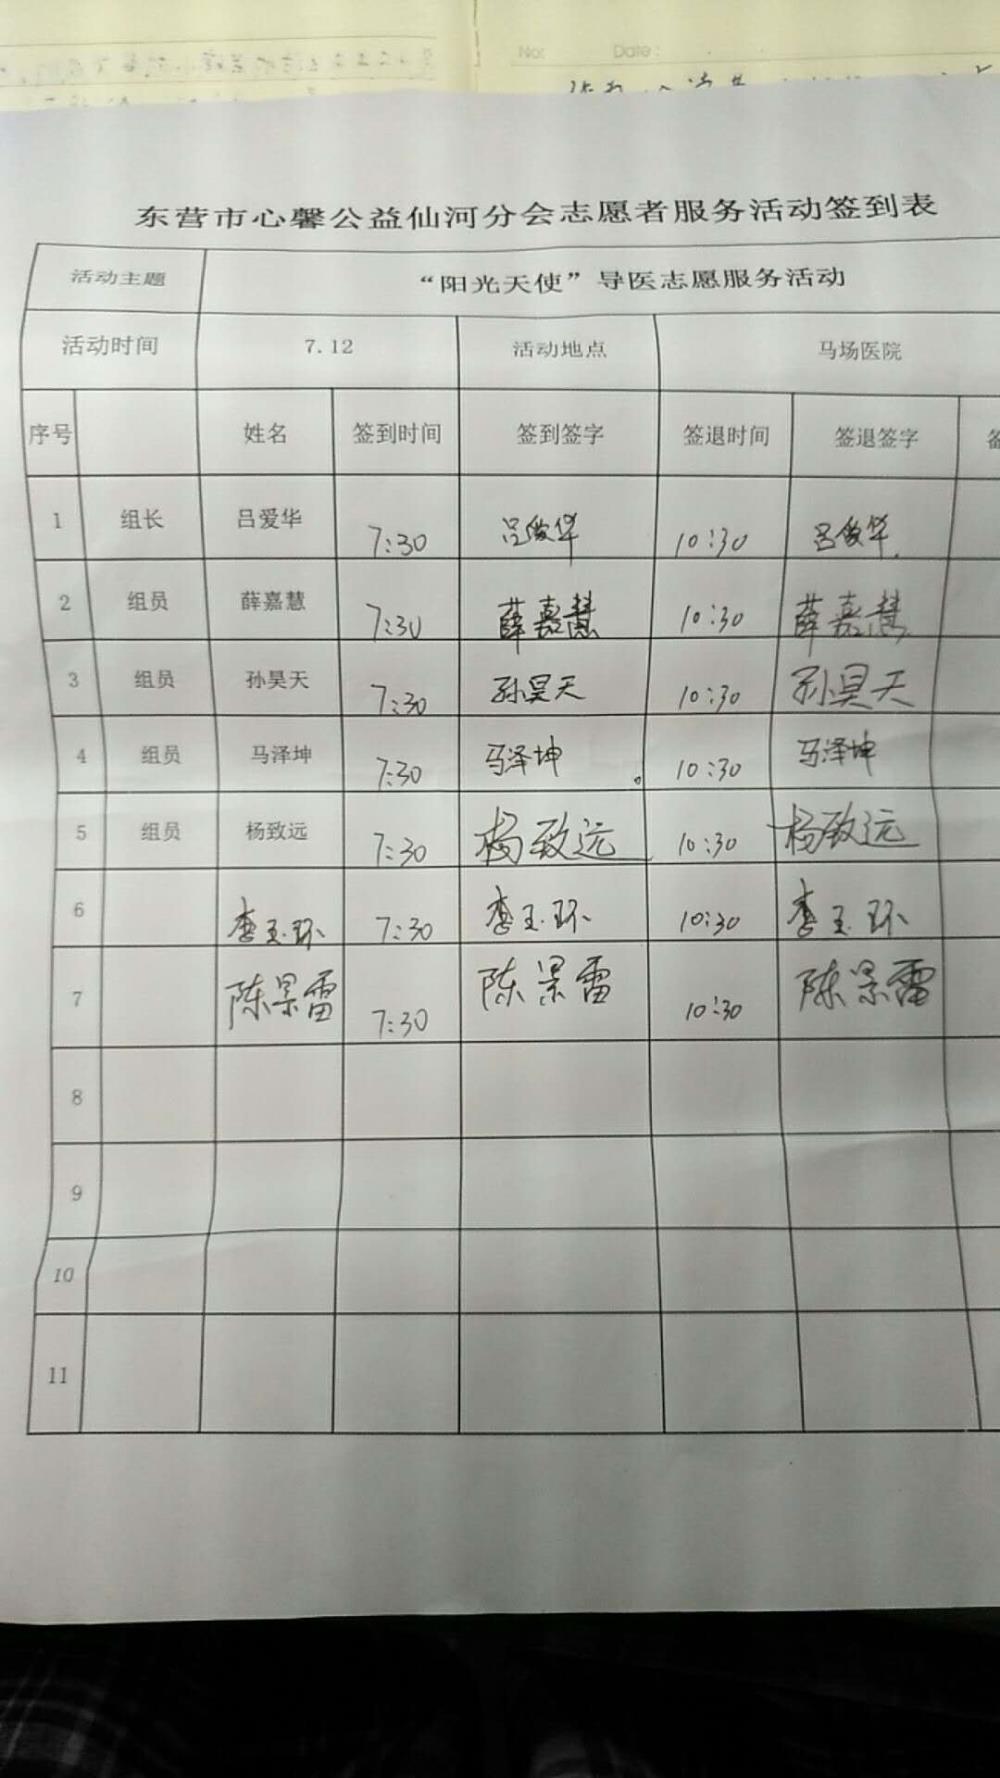 No: Date:
东营市心馨公益仙河分会志愿者服务活动签到表
活动主题 “阳光天使”导医志愿服务活动
活动时间 7.12 活动地点 马场医院
序号 姓名 签到时间 签到签字 签退时间 签退签字
1 组长 吕爱华 7:30 吕爱华 10:30 吕爱华
2 组员 薛嘉慧 7:30 薛嘉慧 10:30 薛嘉慧
3 组员 孙昊天 7:30 孙昊天 10:30 孙昊天
4 组员 马泽坤 7:30 马泽坤 10:30 马泽坤
5 组员 杨致远 7:30 杨致远 10:30 杨致远
6 李玉环 7:30 李玉环 10:30 李玉环
7 陈景雷 7:30 陈景雷 10:30 陈景雷
8
9
10
11